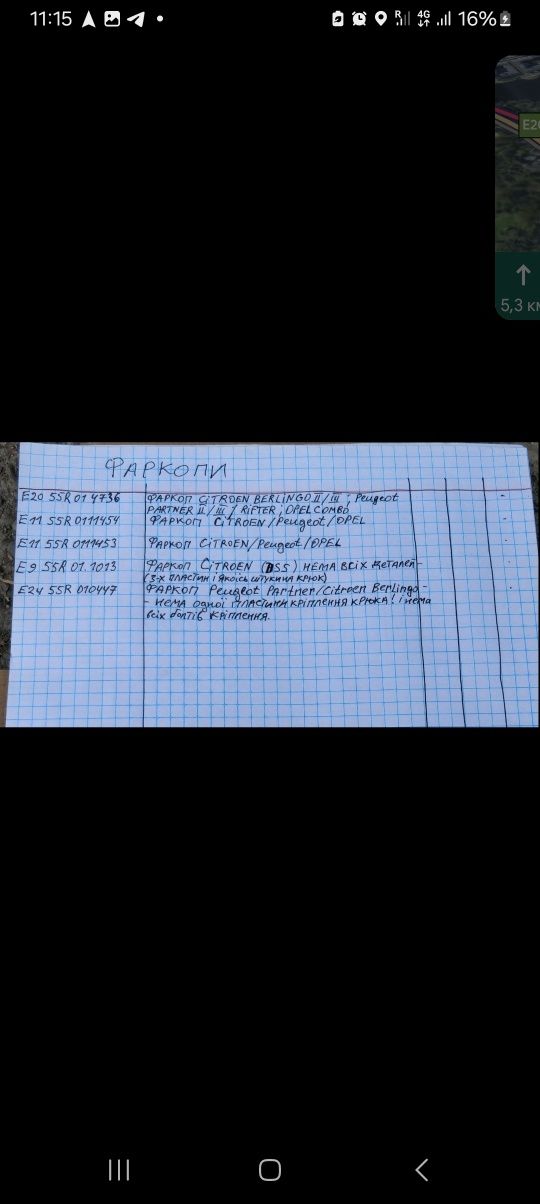 11:15
R 4G 16%
E20
5,3 км
ФАРКОПИ
E20 55R 01 4736 ФАРКОП CITROEN BERLINGO II/III; Peugeot
PARTNER II/III / RIFTER; OPEL COMBO
E11 55R 0111454 ФАРКОП CITROEN/Peugeot/OPEL
E11 55R 0111453 ФАРКОП CITROEN/Peugeot/OPEL
E9 55R 01.1013 ФАРКОП CITROEN (DS5) НЕМА ВСІХ ДЕТАЛЕЙ-
(3-х ПЛАСТИН І ЯКОЇСЬ ШТУКИ НА КРЮК)
E24 55R 010447 ФАРКОП Peugeot Partner/Citroen Berlingo-
- НЕМА ОДНОЇ ПЛАСТИНИ КРІПЛЕННЯ КРЮКА! І НЕМА
ВСІХ БОЛТІВ КРІПЛЕННЯ.